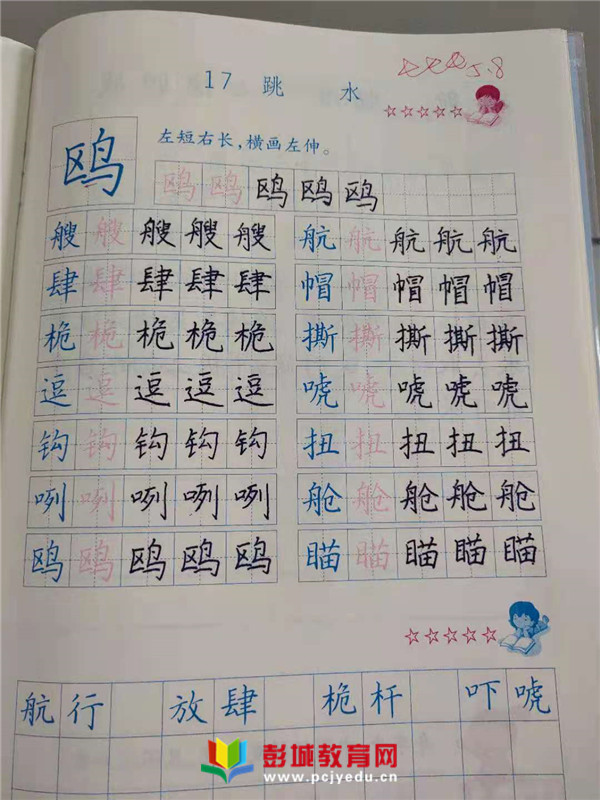 5.8
17 跳 水
☆☆☆☆☆
左短右长，横画左伸。
鸥 鸥 鸥 鸥 鸥 鸥
艘 艘 艘 艘 艘 航 航 航 航 航
肆 肆 肆 肆 肆 帽 帽 帽 帽 帽
桅 桅 桅 桅 桅 撕 撕 撕 撕 撕
逗 逗 逗 逗 逗 唬 唬 唬 唬 唬
钩 钩 钩 钩 钩 扭 扭 扭 扭 扭
咧 咧 咧 咧 咧 舱 舱 舱 舱 舱
鸥 鸥 鸥 鸥 鸥 瞄 瞄 瞄 瞄 瞄
☆☆☆☆☆
航行 放肆 桅杆 吓唬
彭城教育网
www.pcjyedu.cn